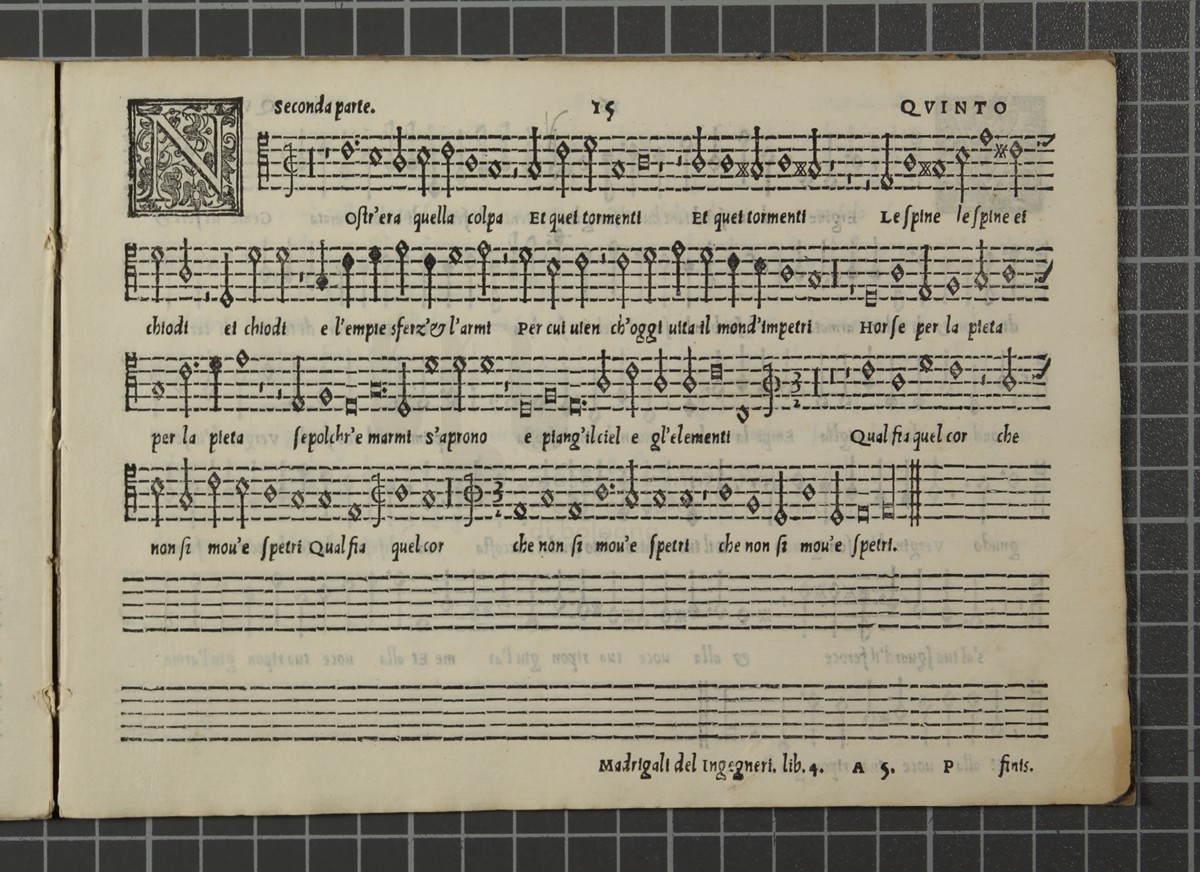 Seconda parte. 15 QVINTO
NOstr'era quella colpa Et quei tormenti Et quei tormenti Le spine le spine ei
chiodi ei chiodi e l'empie sferz'& l'armi Per cui uien ch'oggi uita il mond'impetri Hor se per la pieta
per la pieta sepolchr'e marmi s'aprono e piang'il ciel e gl'elementi Qual fia quel cor che
non si mou'e spetri Qual fia quel cor che non si mou'e spetri che non si mou'e spetri.
Madrigali del Ingegneri. lib. 4. A 5. P finis.